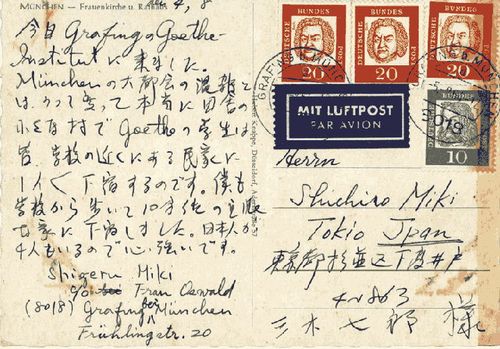 MÜNCHEN — Frauenkirche u. Rathaus
4, 8
今日 Grafing の Goethe
Institut に来ました。
München の大都会の混雑と
はうって変って本当に田舎の
小さな村で Goethe の学生は
皆、学校の近くにある民家に
1人づつ下宿するのです。僕も
学校から歩いて10分位の
家に下宿しました。日本人が
4人もいるので心強いです。
Shigeru Miki
c/o Frau Oswald
(8018) Grafing bei München
Frühlingstr. 20
DEUTSCHE BUNDESPOST
20
DEUTSCHE BUNDESPOST
20
DEUTSCHE BUNDESPOST
20
DEUTSCHE BUNDESPOST
10
GRAFING
8018
MIT LUFTPOST
PAR AVION
Herrn
Shichiro Miki
Tokio Japan
東京都杉並区下高井戸
4〜863
三木七郎 様